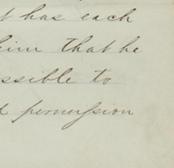 has each
him that he
ssible to
permission